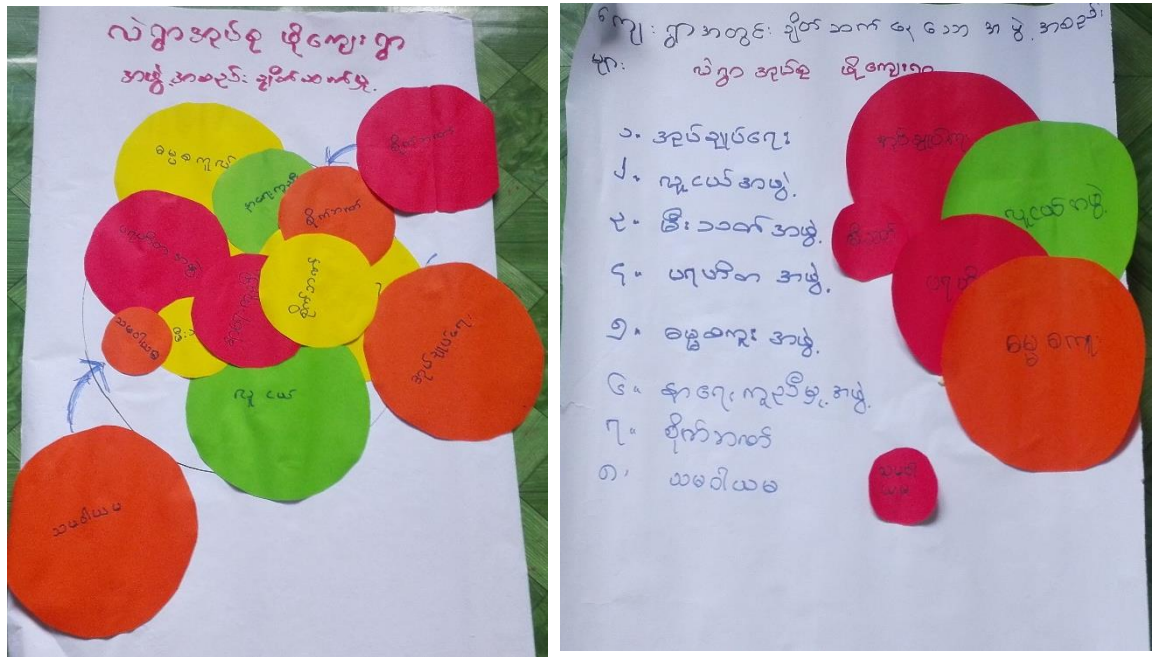 လဲရွာအုပ်စု ဖိုကျေးရွာ
အဖွဲ့အစည်း ချိတ်ဆက်မှု
ဓမ္မစကူးလ်
စိုက်ဘဏ်
နာရေးကူညီ
စိုက်ဘဏ်
ပရဟိတ အဖွဲ့
သမဝါယမ
မီးသ
အုပ်ချုပ်ရေး
လူငယ်
သမဝါယမ
ကျေးရွာအတွင်း ချိတ်ဆက်နေသော အဖွဲ့အစည်း
များ
လဲရွာအုပ်စု ဖိုကျေးရွာ
၁။ အုပ်ချုပ်ရေး
၂။ လူငယ်အဖွဲ့
၃။ မီးသတ်အဖွဲ့
၄။ ပရဟိတ အဖွဲ့
၅။ ဓမ္မစကူး အဖွဲ့
၆။ နာရေးကူညီမှု အဖွဲ့
၇။ စိုက်ဘဏ်
၈။ သမဝါယမ
အုပ်ချုပ်ရေး
လူငယ်အဖွဲ့
မီးသတ်
ပရဟိ
ဓမ္မစကူး
သမဝါ
ယမ